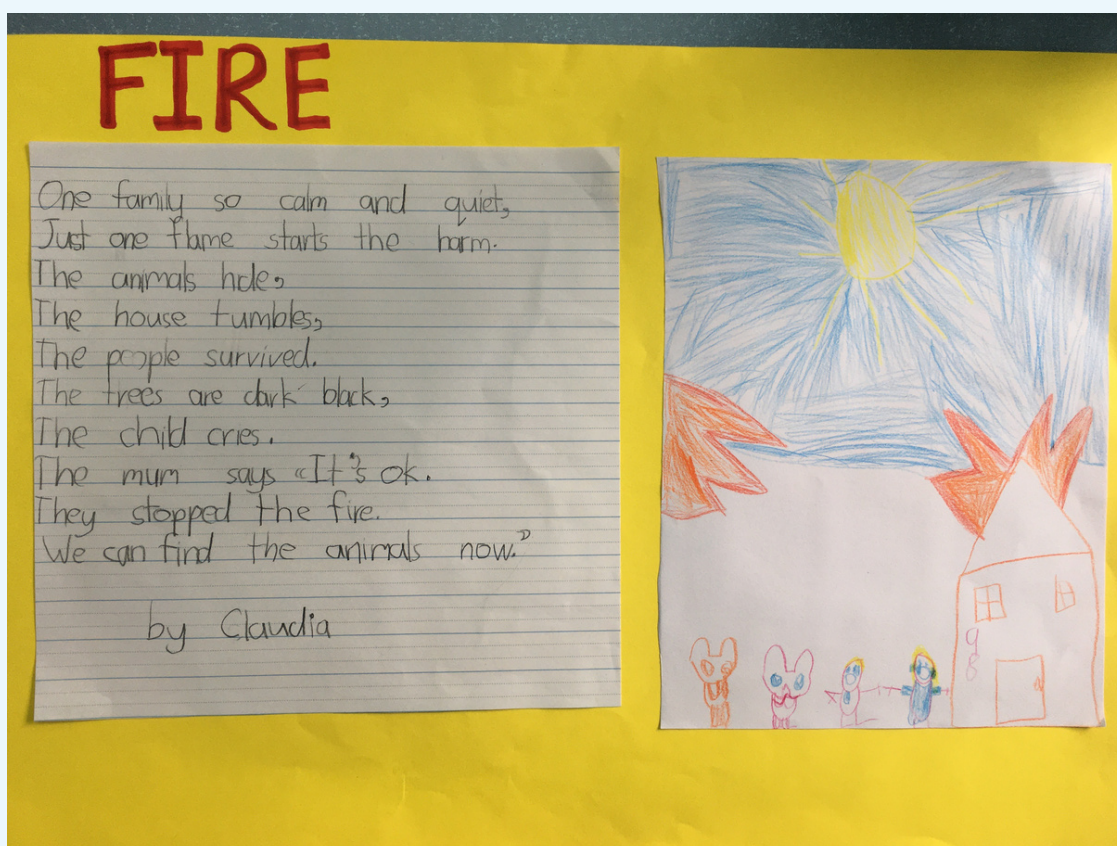 FIRE
One family so calm and quiet,
Just one flame starts the harm.
The animals hide,
The house tumbles,
The people survived.
The trees are dark black,
The child cries.
The mum says "It's ok.
They stopped the fire.
We can find the animals now."
by Claudia
98